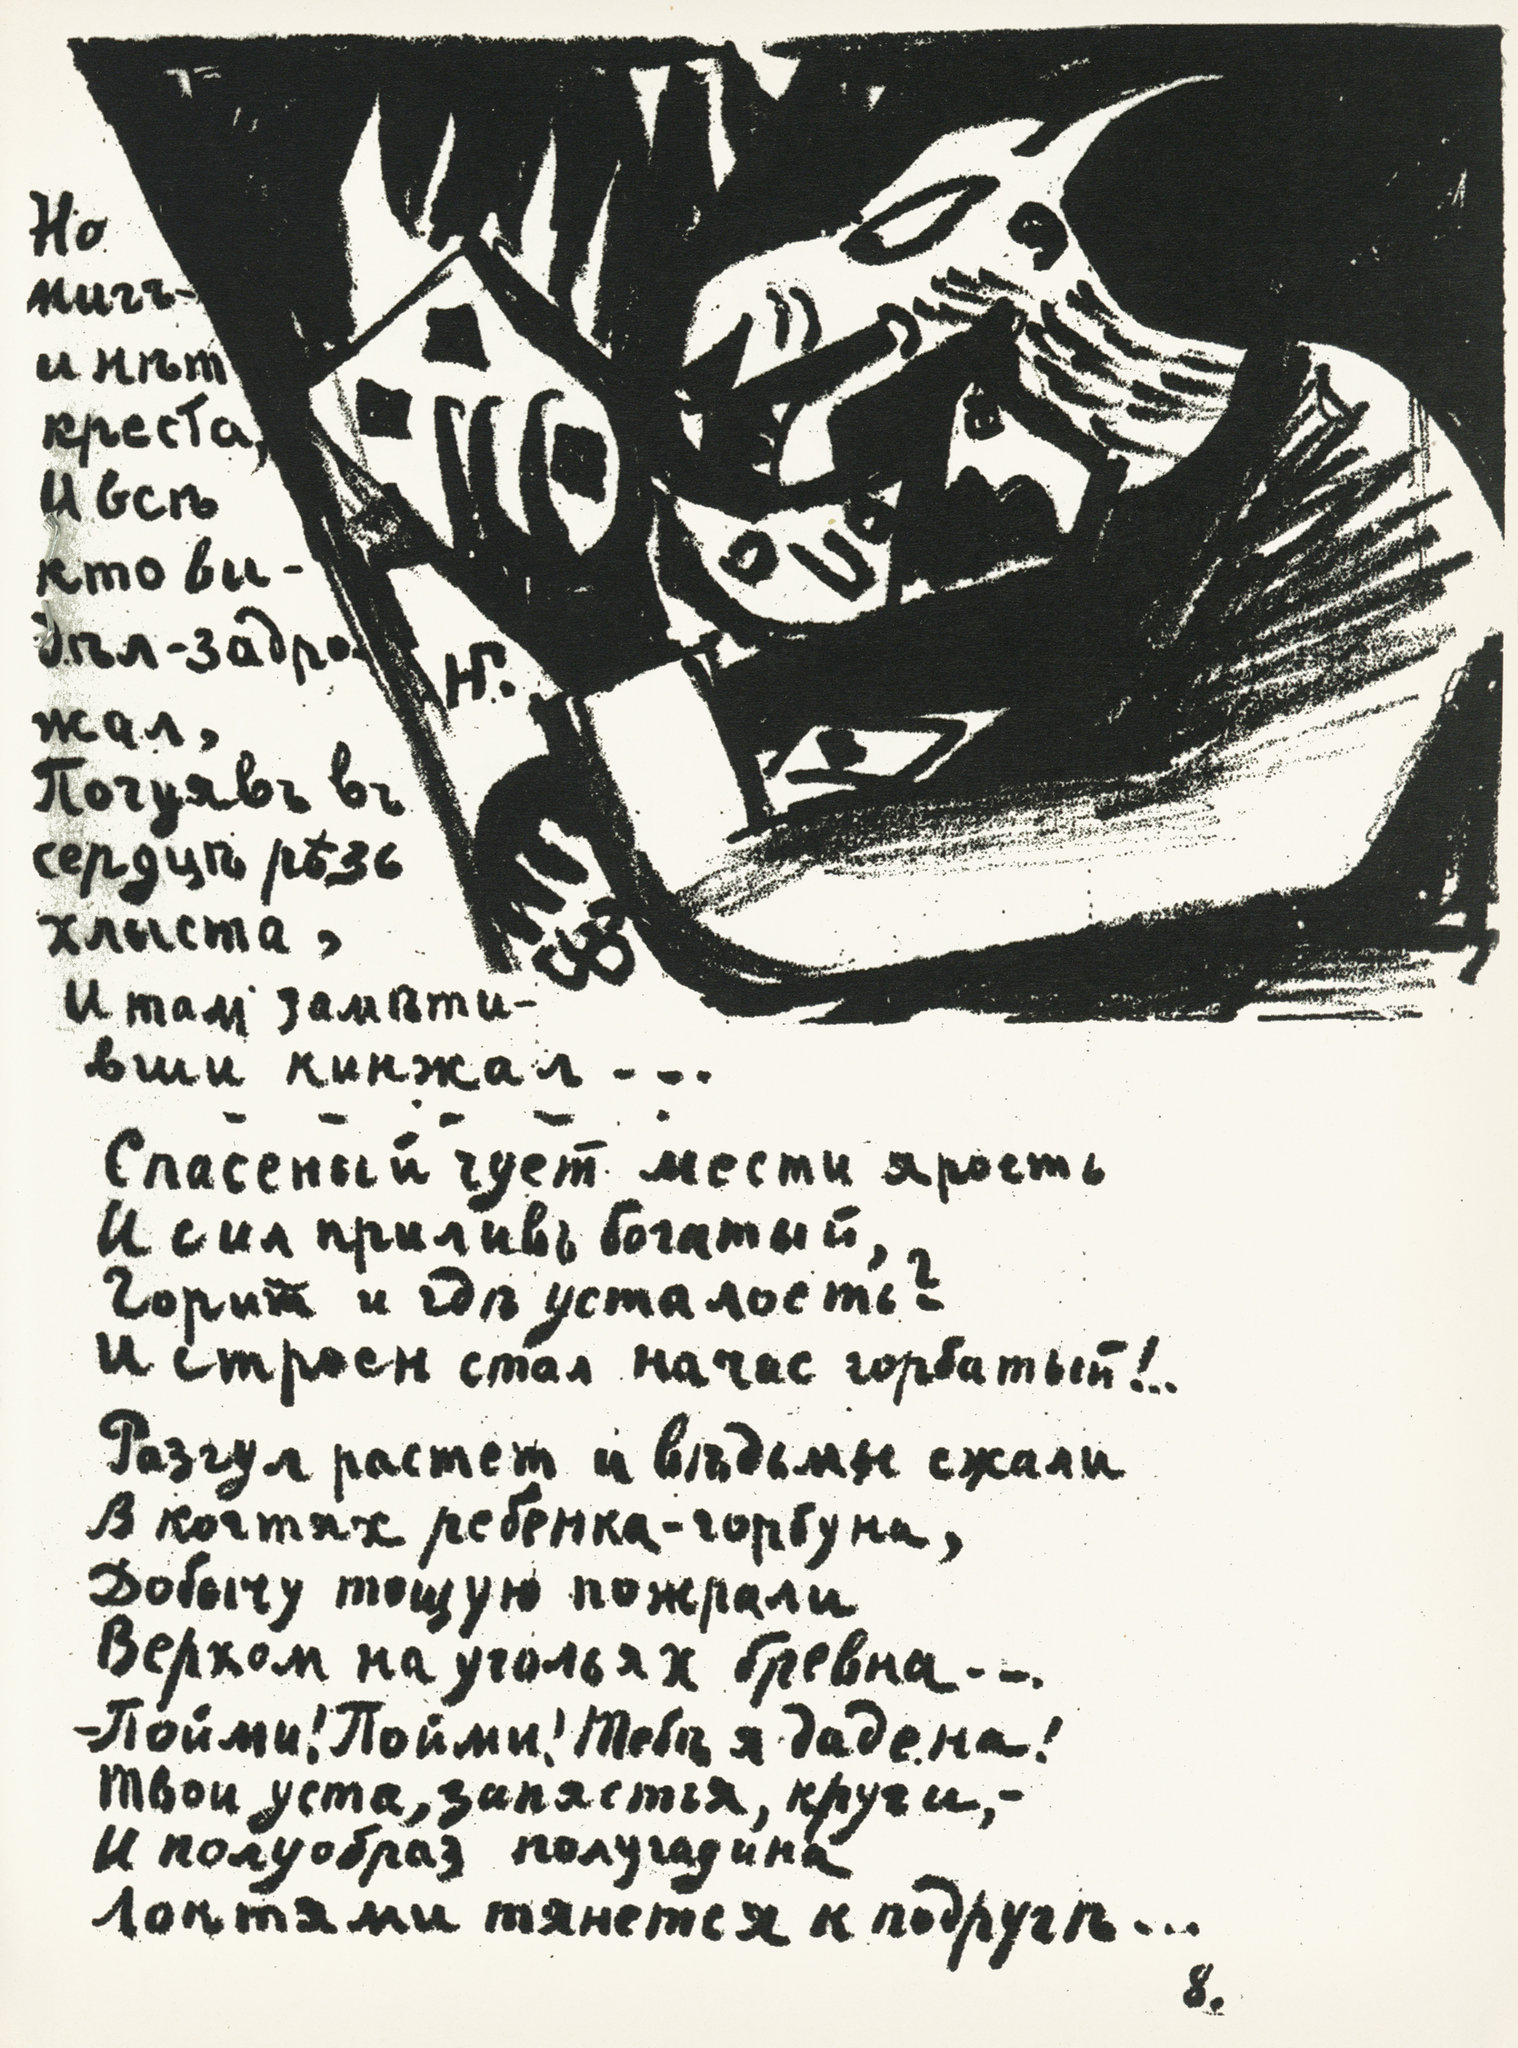 Но
мигъ-
и нѣт
креста,
И всѣ
кто ви-
дѣл-задро-
жал,
Почуявъ въ
сердцѣ рѣзь
хлыста,
И там замѣти-
вши кинжал - - .
Н Г.
Спасеный чует мести ярость
И сил приливъ богатый,
Горит и гдѣ усталость?
И строен стал на час горбатый!..
Разгул растет и вѣдьмы сжали
В когтях ребенка-горбуна,
Добычу тощую пожрали
Верхом на угольях бревна - - .
-Пойми! Пойми! Тебѣ я дадена!
Твои уста, запястья, круги,-
И полуобраз полугадина
Локтями тянется к подругѣ...
8.